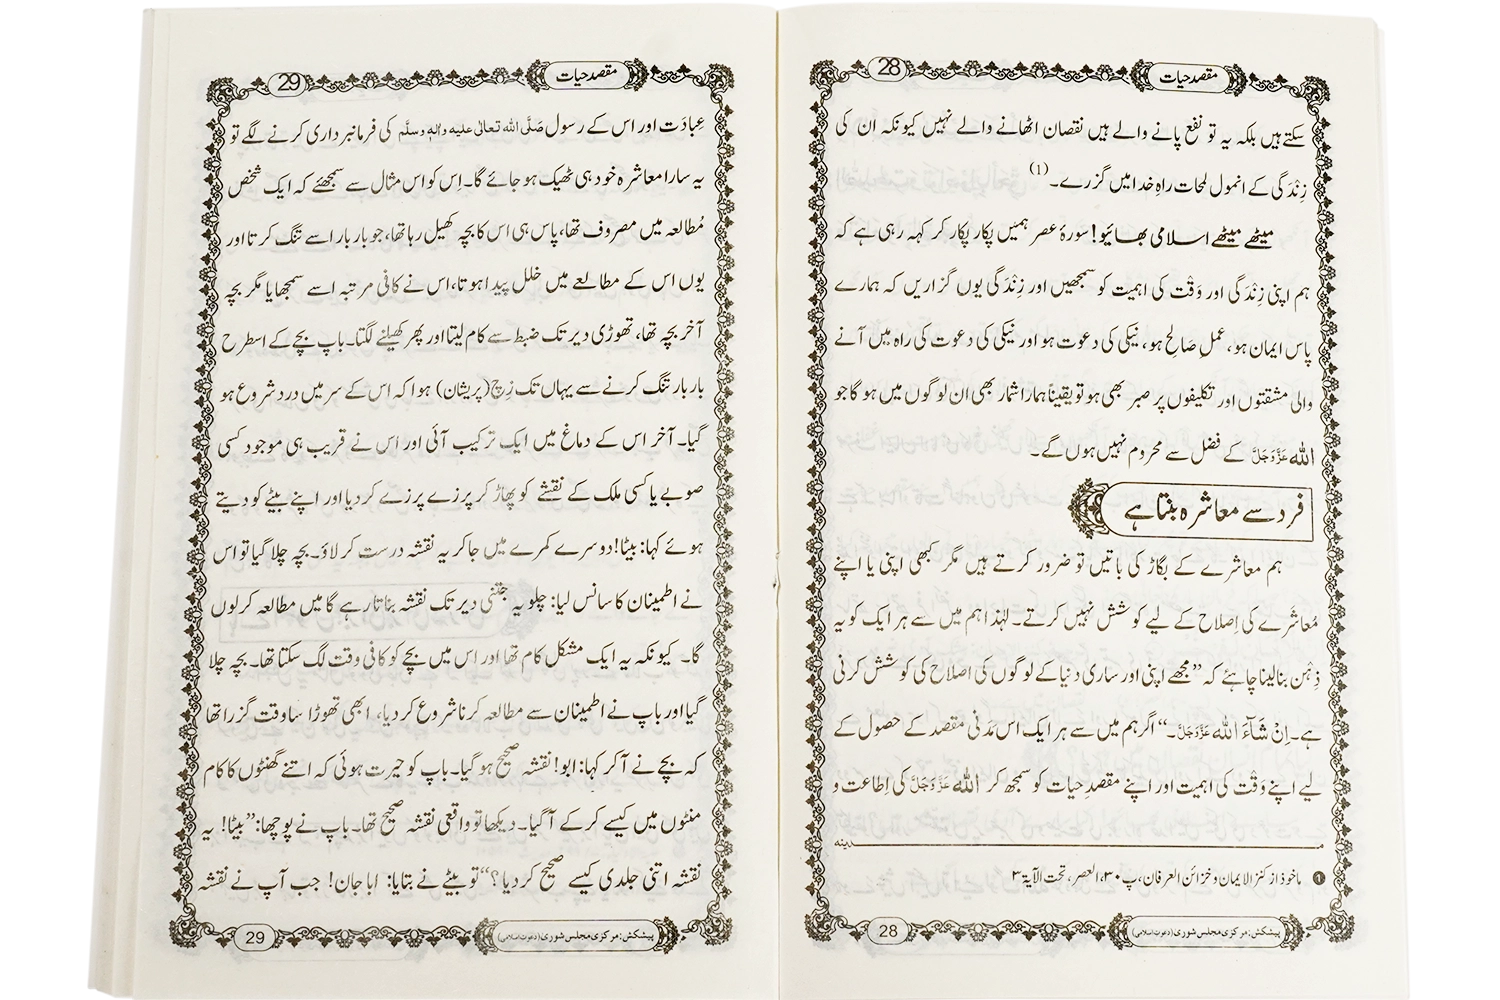 مقصدِ حیات
28
سکتے ہیں بلکہ یہ تو نفع پانے والے ہیں نقصان اٹھانے والے نہیں کیونکہ ان کی
زِنْدَگی کے انمول لمحات راہِ خدا میں گزرے۔(1)
میٹھے میٹھے اسلامی بھائیو! سورۂ عصر ہمیں پکار پکار کر کہہ رہی ہے کہ
ہم اپنی زِنْدَگی اور وَقْت کی اہمیت کو سمجھیں اور زِنْدَگی یوں گزاریں کہ ہمارے
پاس ایمان ہو، عملِ صَالِح ہو، نیکی کی دعوت ہو اور نیکی کی دعوت کی راہ میں آنے
والی مشقتوں اور تکلیفوں پر صبر بھی ہو تو یقیناً ہمارا شمار بھی ان لوگوں میں ہو گا جو
اللہ عَزَّوَجَلَّ کے فضل سے محروم نہیں ہوں گے۔
فرد سے معاشرہ بنتا ہے
ہم معاشرے کے بگاڑ کی باتیں تو ضرور کرتے ہیں مگر کبھی اپنی یا اپنے
مُعاشَرے کی اِصلاح کے لیے کوشش نہیں کرتے۔ لہٰذا ہم میں سے ہر ایک کو یہ
ذِہْن بنا لینا چاہئے کہ ”مجھے اپنی اور ساری دنیا کے لوگوں کی اصلاح کی کوشش کرنی
ہے۔ اِنْ شَآءَ اللہ عَزَّوَجَلَّ۔“ اگر ہم میں سے ہر ایک اس مَدَنی مقصد کے حصول کے
لیے اپنے وَقْت کی اہمیت اور اپنے مقصدِ حیات کو سمجھ کر اللہ عَزَّوَجَلَّ کی اِطاعت و
مـــدینه
❶ ماخوذ از کنز الایمان و خزائن العرفان، پ۳۰، العصر، تحت الآیۃ ۳
28
پیشکش: مرکزی مجلس شوریٰ (دعوتِ اسلامی)
مقصدِ حیات
29
عِبادَت اور اس کے رسول صَلَّی اللہ تعالٰی علیه واٰلهٖ وسلَّم کی فرمانبرداری کرنے لگے تو
یہ سارا معاشرہ خود ہی ٹھیک ہو جائے گا۔ اِس کو اس مثال سے سمجھئے کہ ایک شخص
مُطالعہ میں مصروف تھا، پاس ہی اس کا بچہ کھیل رہا تھا، جو بار بار اسے تنگ کرتا اور
یوں اس کے مطالعے میں خلل پیدا ہوتا، اس نے کافی مرتبہ اسے سمجھایا مگر بچہ
آخر بچہ تھا، تھوڑی دیر تک ضبط سے کام لیتا اور پھر کھیلنے لگتا۔ باپ بچے کے اسطرح
بار بار تنگ کرنے سے یہاں تک زِچ (پریشان) ہوا کہ اس کے سر میں درد شروع ہو
گیا۔ آخر اس کے دماغ میں ایک ترکیب آئی اور اس نے قریب ہی موجود کسی
صوبے یا کسی ملک کے نقشے کو پھاڑ کر پرزے پرزے کر دیا اور اپنے بیٹے کو دیتے
ہوئے کہا: بیٹا! دوسرے کمرے میں جا کر یہ نقشہ درست کر لاؤ۔ بچہ چلا گیا تو اس
نے اطمینان کا سانس لیا: چلو یہ جتنی دیر تک نقشہ بناتا رہے گا میں مطالعہ کر لوں
گا۔ کیونکہ یہ ایک مشکل کام تھا اور اس میں بچے کو کافی وقت لگ سکتا تھا۔ بچہ چلا
گیا اور باپ نے اطمینان سے مطالعہ کرنا شروع کر دیا، ابھی تھوڑا سا وقت گزرا تھا
کہ بچے نے آ کر کہا: ابو! نقشہ صحیح ہو گیا۔ باپ کو حیرت ہوئی کہ اتنے گھنٹوں کا کام
منٹوں میں کیسے کر کے آ گیا۔ دیکھا تو واقعی نقشہ صحیح تھا۔ باپ نے پوچھا: ”بیٹا! یہ
نقشہ اتنی جلدی کیسے صحیح کر دیا؟“ تو بیٹے نے بتایا: ابا جان! جب آپ نے نقشہ
29
پیشکش: مرکزی مجلس شوریٰ (دعوتِ اسلامی)